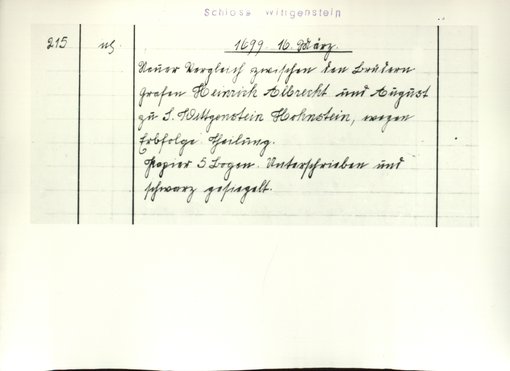 Schloss Wittgenstein
215
1699. 16. März.
Neuer Vergleich zwischen den Brüdern
Grafen Heinrich Albrecht und August
zu S. Wittgenstein Hohnstein, wegen
Erbfolge. Theilung.
Papier 5 Bogen. Unterschrieben und
schwarz gesiegelt.